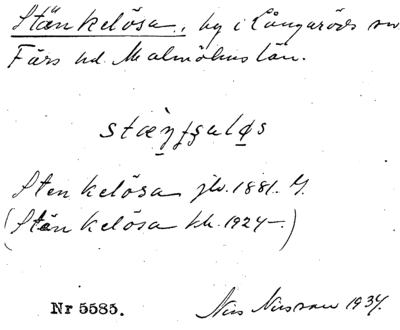 Stänkelösa, by i Långaröds sn.
Färs hd. Malmöhus län.
Stenkelösa jb. 1881.
(Stänkelösa kk. 1924–.)
Nr 5585. Nils Nilsson 1934.